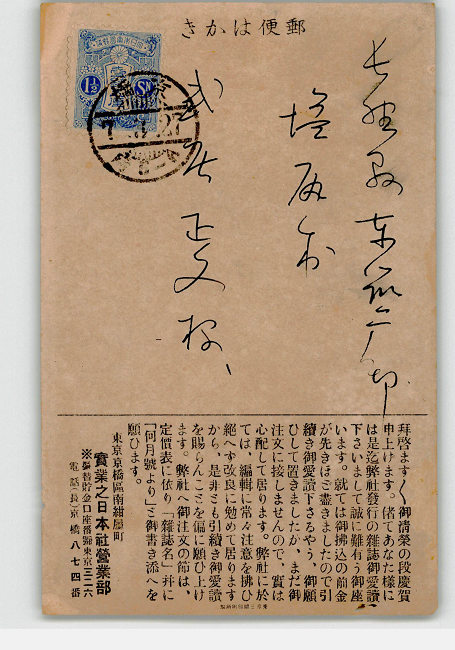 郵便はかき
1½ SN
京橋
7.1.27
長野縣東筑摩郡
塩尻
武居正文様、
拜啓ますく御清榮の段慶賀
申上げます。偖てあなた樣に
は是迄弊社發行の雜誌御愛讀
下さいまして誠に難有う御座
います。就ては御拂込の前金
が先きほど盡きましたので引
續き御愛讀下さるやう、御願
ひして置きましたが、まだ御
注文に接しませんので、實は
心配して居ります。弊社に於
ては、編輯に常々注意を拂ひ
絕へず改良に勉めて居ります
から、是非とも引續き御愛讀
を賜らんことを偏に願ひ上げ
ます。弊社へ御注文の節は、
定價表に依り「雜誌名」幷に
「何月號より」と御書き添へを
願ひます。
東京京橋區南紺屋町
實業之日本社營業部
※振替貯金口座番號東京三二六
電話(長)京橋八七四番